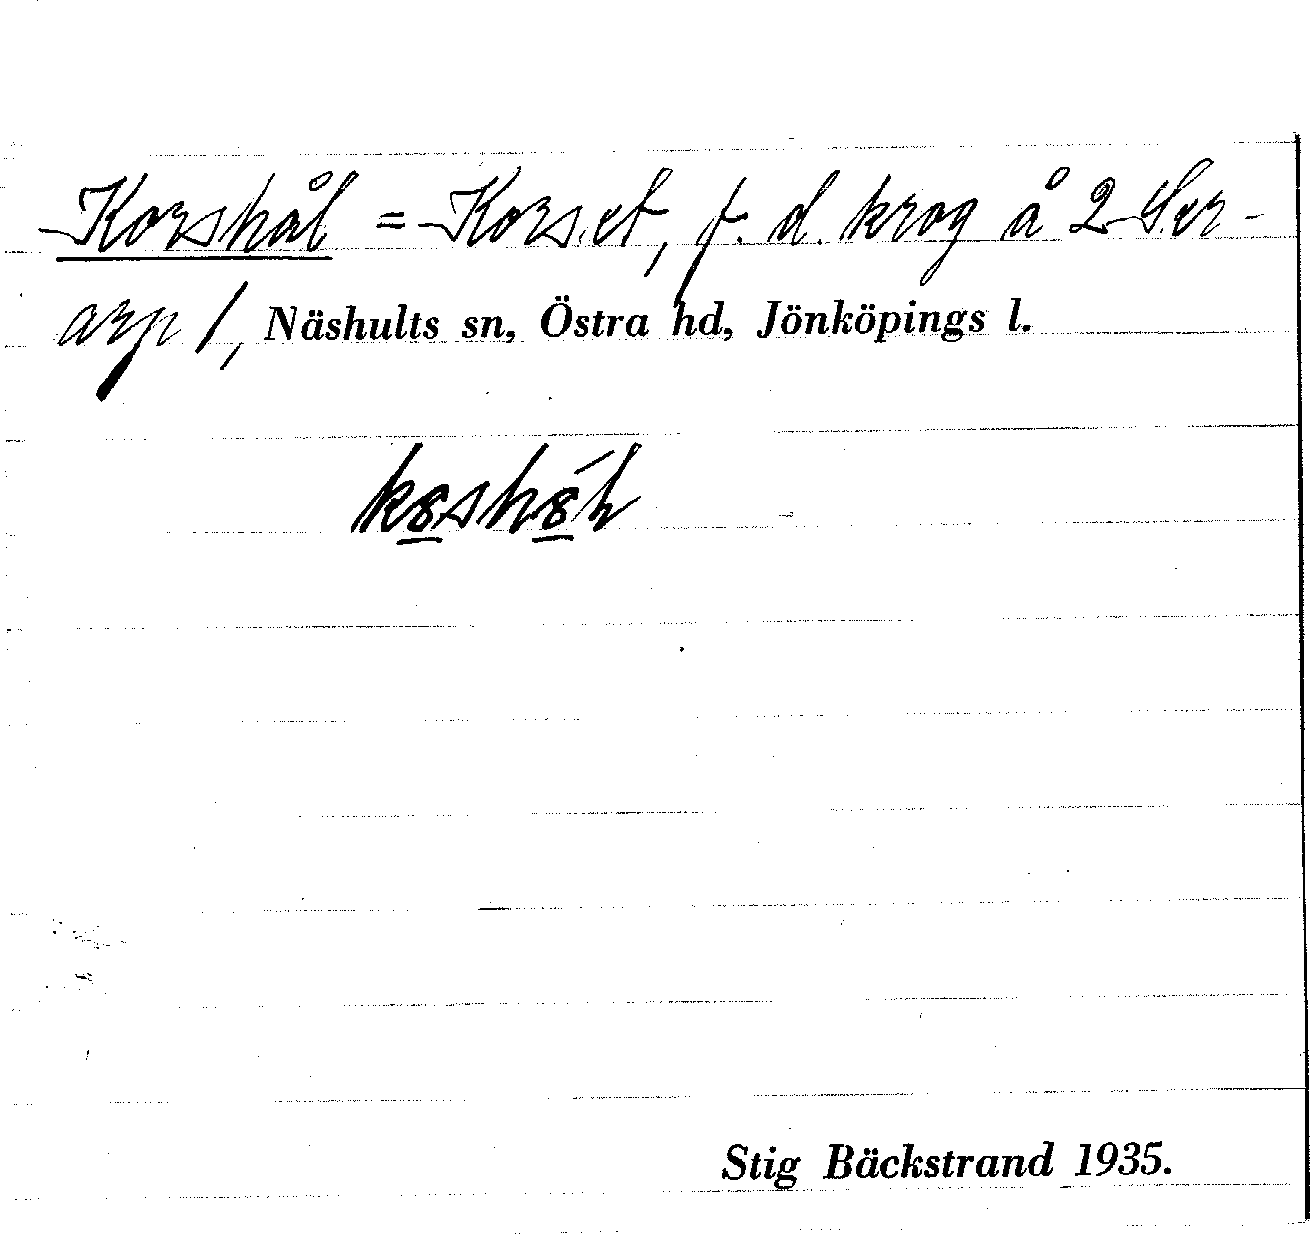 Korshål = Korset, f. d. krog å 2 Ser-
arp /, Näshults sn, Östra hd, Jönköpings l.
Stig Bäckstrand 1935.